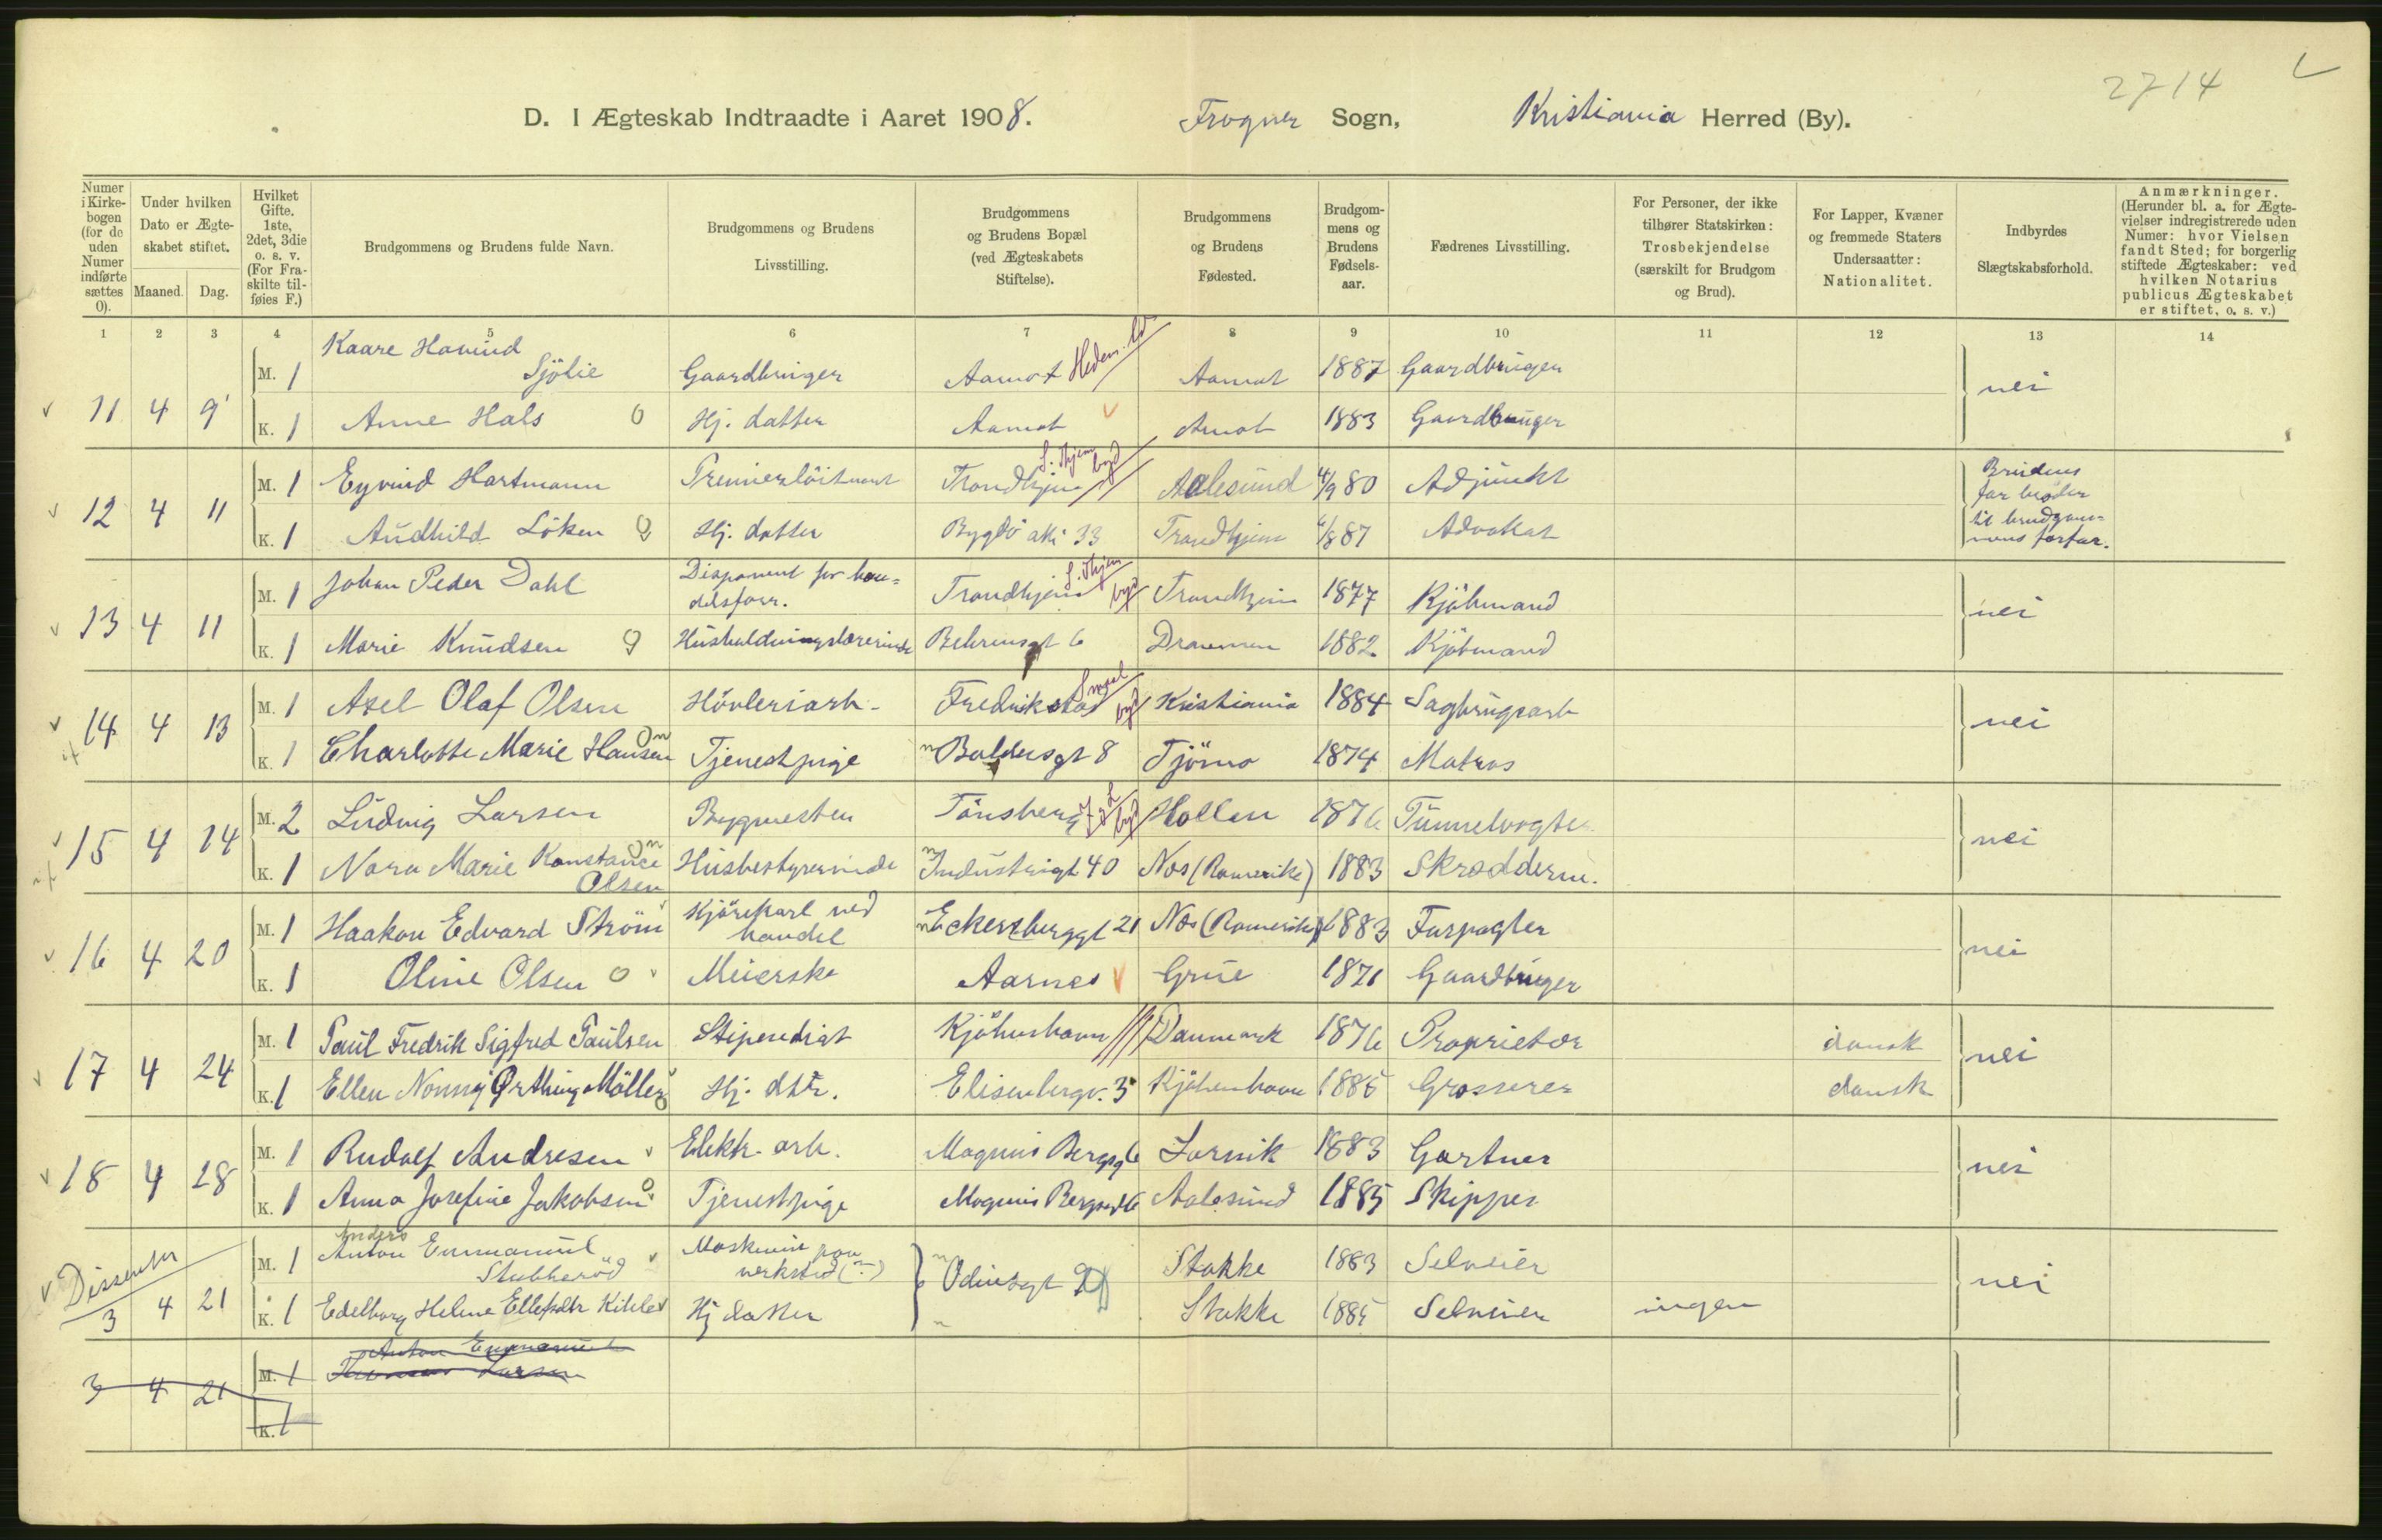 2714
D. I Ægteskab Indtraadte i Aaret 1908. Frogner Sogn, Kristiania Herred (By).
Numer i Kirkebogen (for de uden Numer indførte sættes 0).
Under hvilken Dato er Ægteskabet stiftet.
Maaned. Dag.
Hvilket Gifte. 1ste, 2det, 3die o. s. v. (For Fraskilte tilføies F.)
Brudgommens og Brudens fulde Navn.
Brudgommens og Brudens Livsstilling.
Brudgommens og Brudens Bopæl (ved Ægteskabets Stiftelse).
Brudgommens og Brudens Fødested.
Brudgommens og Brudens Fødselsaar.
Fædrenes Livsstilling.
For Personer, der ikke tilhører Statskirken: Trosbekjendelse (særskilt for Brudgom og Brud).
For Lapper, Kvæner og fremmede Staters Undersaatter: Nationalitet.
Indbyrdes Slægtskabsforhold.
Anmærkninger. (Herunder bl. a. for Ægtevielser indregistrerede uden Numer: hvor Vielsen fandt Sted; for borgerlig stiftede Ægteskaber: ved hvilken Notarius publicus Ægteskabet er stiftet, o. s. v.)
1 2 3 4 5 6 7 8 9 10 11 12 13 14
11 4 9 M. 1 Kaare Havind Sjölie Gaardbruger Aamot Hedem. Aamot 1887 Gaardbruger nei
K. 1 Anne Hals 0 Hj. datter Aamot Amot 1883 Gaardbruger
12 4 11 M. 1 Eyvind Hartmann Premierlöitnant Trondhjem Aalesund 4/9 80 Adjunkt Brudens far broder til brudgommens farfar.
K. 1 Audhild Löken Hj. datter Bygdö alle 33 Trondhjem 87 Advokat
13 4 11 M. 1 Johan Peder Dahl Disponent for handelsforr. Trondhjem Trondhjem 1877 Kjöbmand nei
K. 1 Marie Knudsen Husholdningslærerinde Behrensgt 6 Drammen 1882 Kjöbmand
14 4 13 M. 1 Axel Olaf Olsen Hövleriarb. Fredrikstad Kristiania 1884 Sagbrugsarb nei
K. 1 Charlotte Marie Hansen Tjenestpige Baldersgt 8 Tjömö 1874 Matros
15 4 14 M. 2 Ludvig Larsen Bygmester Tönsberg Hollen 1876 Tunnelvogter nei
K. 1 Nora Marie Konstance Olsen Husbestyrerinde Industrigt 40 Nes (Romerike) 1883 Skrædderm.
16 4 20 M. 1 Haakon Edvard Ström Kjörekarl ved handel Eckersberggt 21 Nes (Romerike) 1883 Forpagter nei
K. 1 Oline Olsen 0 Meierske Aarnes Grue 1871 Gaardbruger
17 4 24 M. 1 Paul Fredrik Sigfred Paulsen Stipendiat Kjöbenhavn Danmark 1876 Proprietær dansk nei
K. 1 Ellen Nonny Ørthing Möller Hj. dtr. Elisenbergv. 3 Kjöbenhavn 1885 Grosserer dansk
18 4 28 M. 1 Rudolf Andresen Elektr. arb. Magnus Bergsg 6 Larvik 1883 Gartner nei
K. 1 Anna Josefine Jakobsen Tjenestpige Magnus Bergsgt 6 Aalesund 1885 Skipper
Dissenter 3 4 21 M. 1 Anders Anton Emmanuel Stubberöd Maskinist paa verksted Odinsgt Stokke 1883 Selveier nei
K. 1 Edelborg Helene Ellefsdtr Hj datter Stokke 1885 Selveier ingen
3 4 21 M. 1 Anton Emmanuel Larsen
K. 1